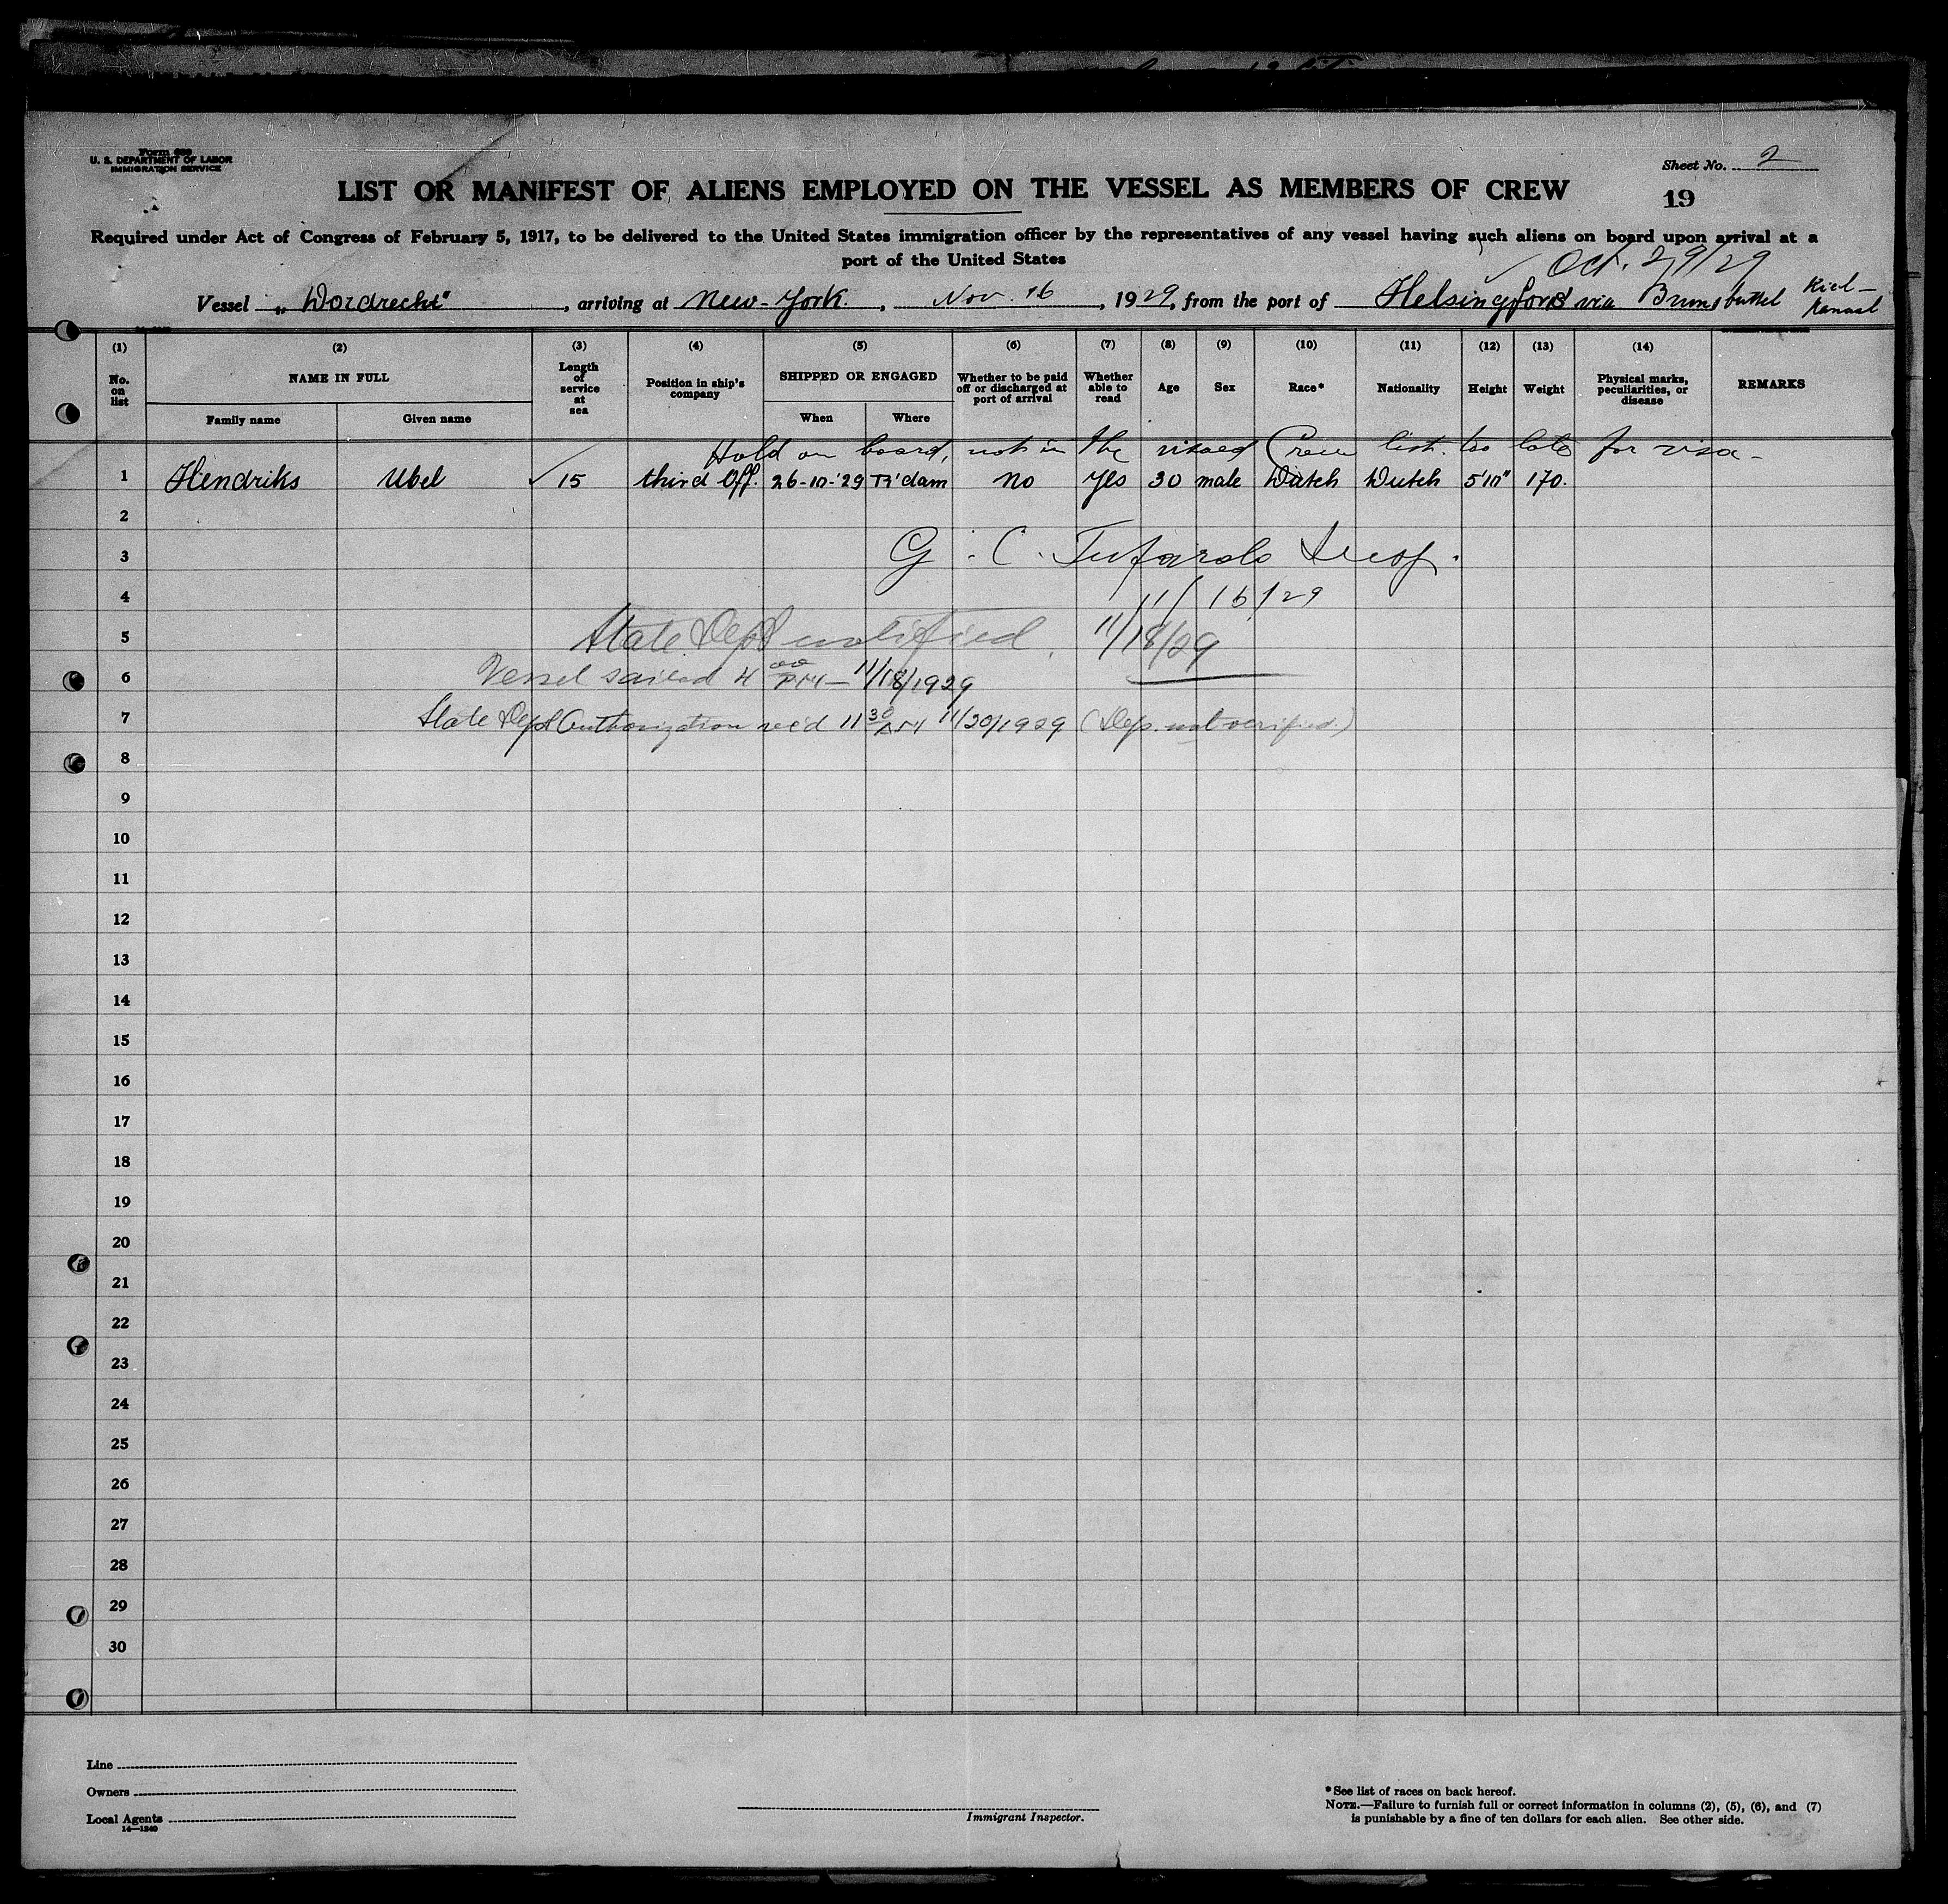 Form 680
U. S. DEPARTMENT OF LABOR
IMMIGRATION SERVICE
Sheet No. 2
LIST OR MANIFEST OF ALIENS EMPLOYED ON THE VESSEL AS MEMBERS OF CREW
19
Required under Act of Congress of February 5, 1917, to be delivered to the United States immigration officer by the representatives of any vessel having such aliens on board upon arrival at a
port of the United States
Oct. 29/29
Vessel „Dordrecht", arriving at New-York., Nov. 16, 1929, from the port of Helsingfors via Brunsbuttel Kiel-
Kanaal
(1) (2) (3) (4) (5) (6) (7) (8) (9) (10) (11) (12) (13) (14)
No. on list NAME IN FULL Length of service at sea Position in ship's company SHIPPED OR ENGAGED Whether to be paid off or discharged at port of arrival Whether able to read Age Sex Race* Nationality Height Weight Physical marks, peculiarities, or disease REMARKS
Family name Given name When Where
Hold on board, not in the visaed Crew list. too late for visa-
1 Hendriks Ubel ✓ 15 third Off. 26-10-'29 R'dam no yes 30 male Dutch Dutch 5'10" 170.
2
3 G. C. Insp.
4 11/16/29
5 State Dept notified. 11/18/29
6 Vessel sailed 4 00 PM — 11/18/1929
7 State Dept Authorization rec'd 11 30 AM 11/20/1929 (Dep. not verified.)
8
9
10
11
12
13
14
15
16
17
18
19
20
21
22
23
24
25
26
27
28
29
30
Line
Owners
Local Agents
14—1240
Immigrant Inspector.
*See list of races on back hereof.
NOTE.—Failure to furnish full or correct information in columns (2), (5), (6), and (7)
is punishable by a fine of ten dollars for each alien. See other side.